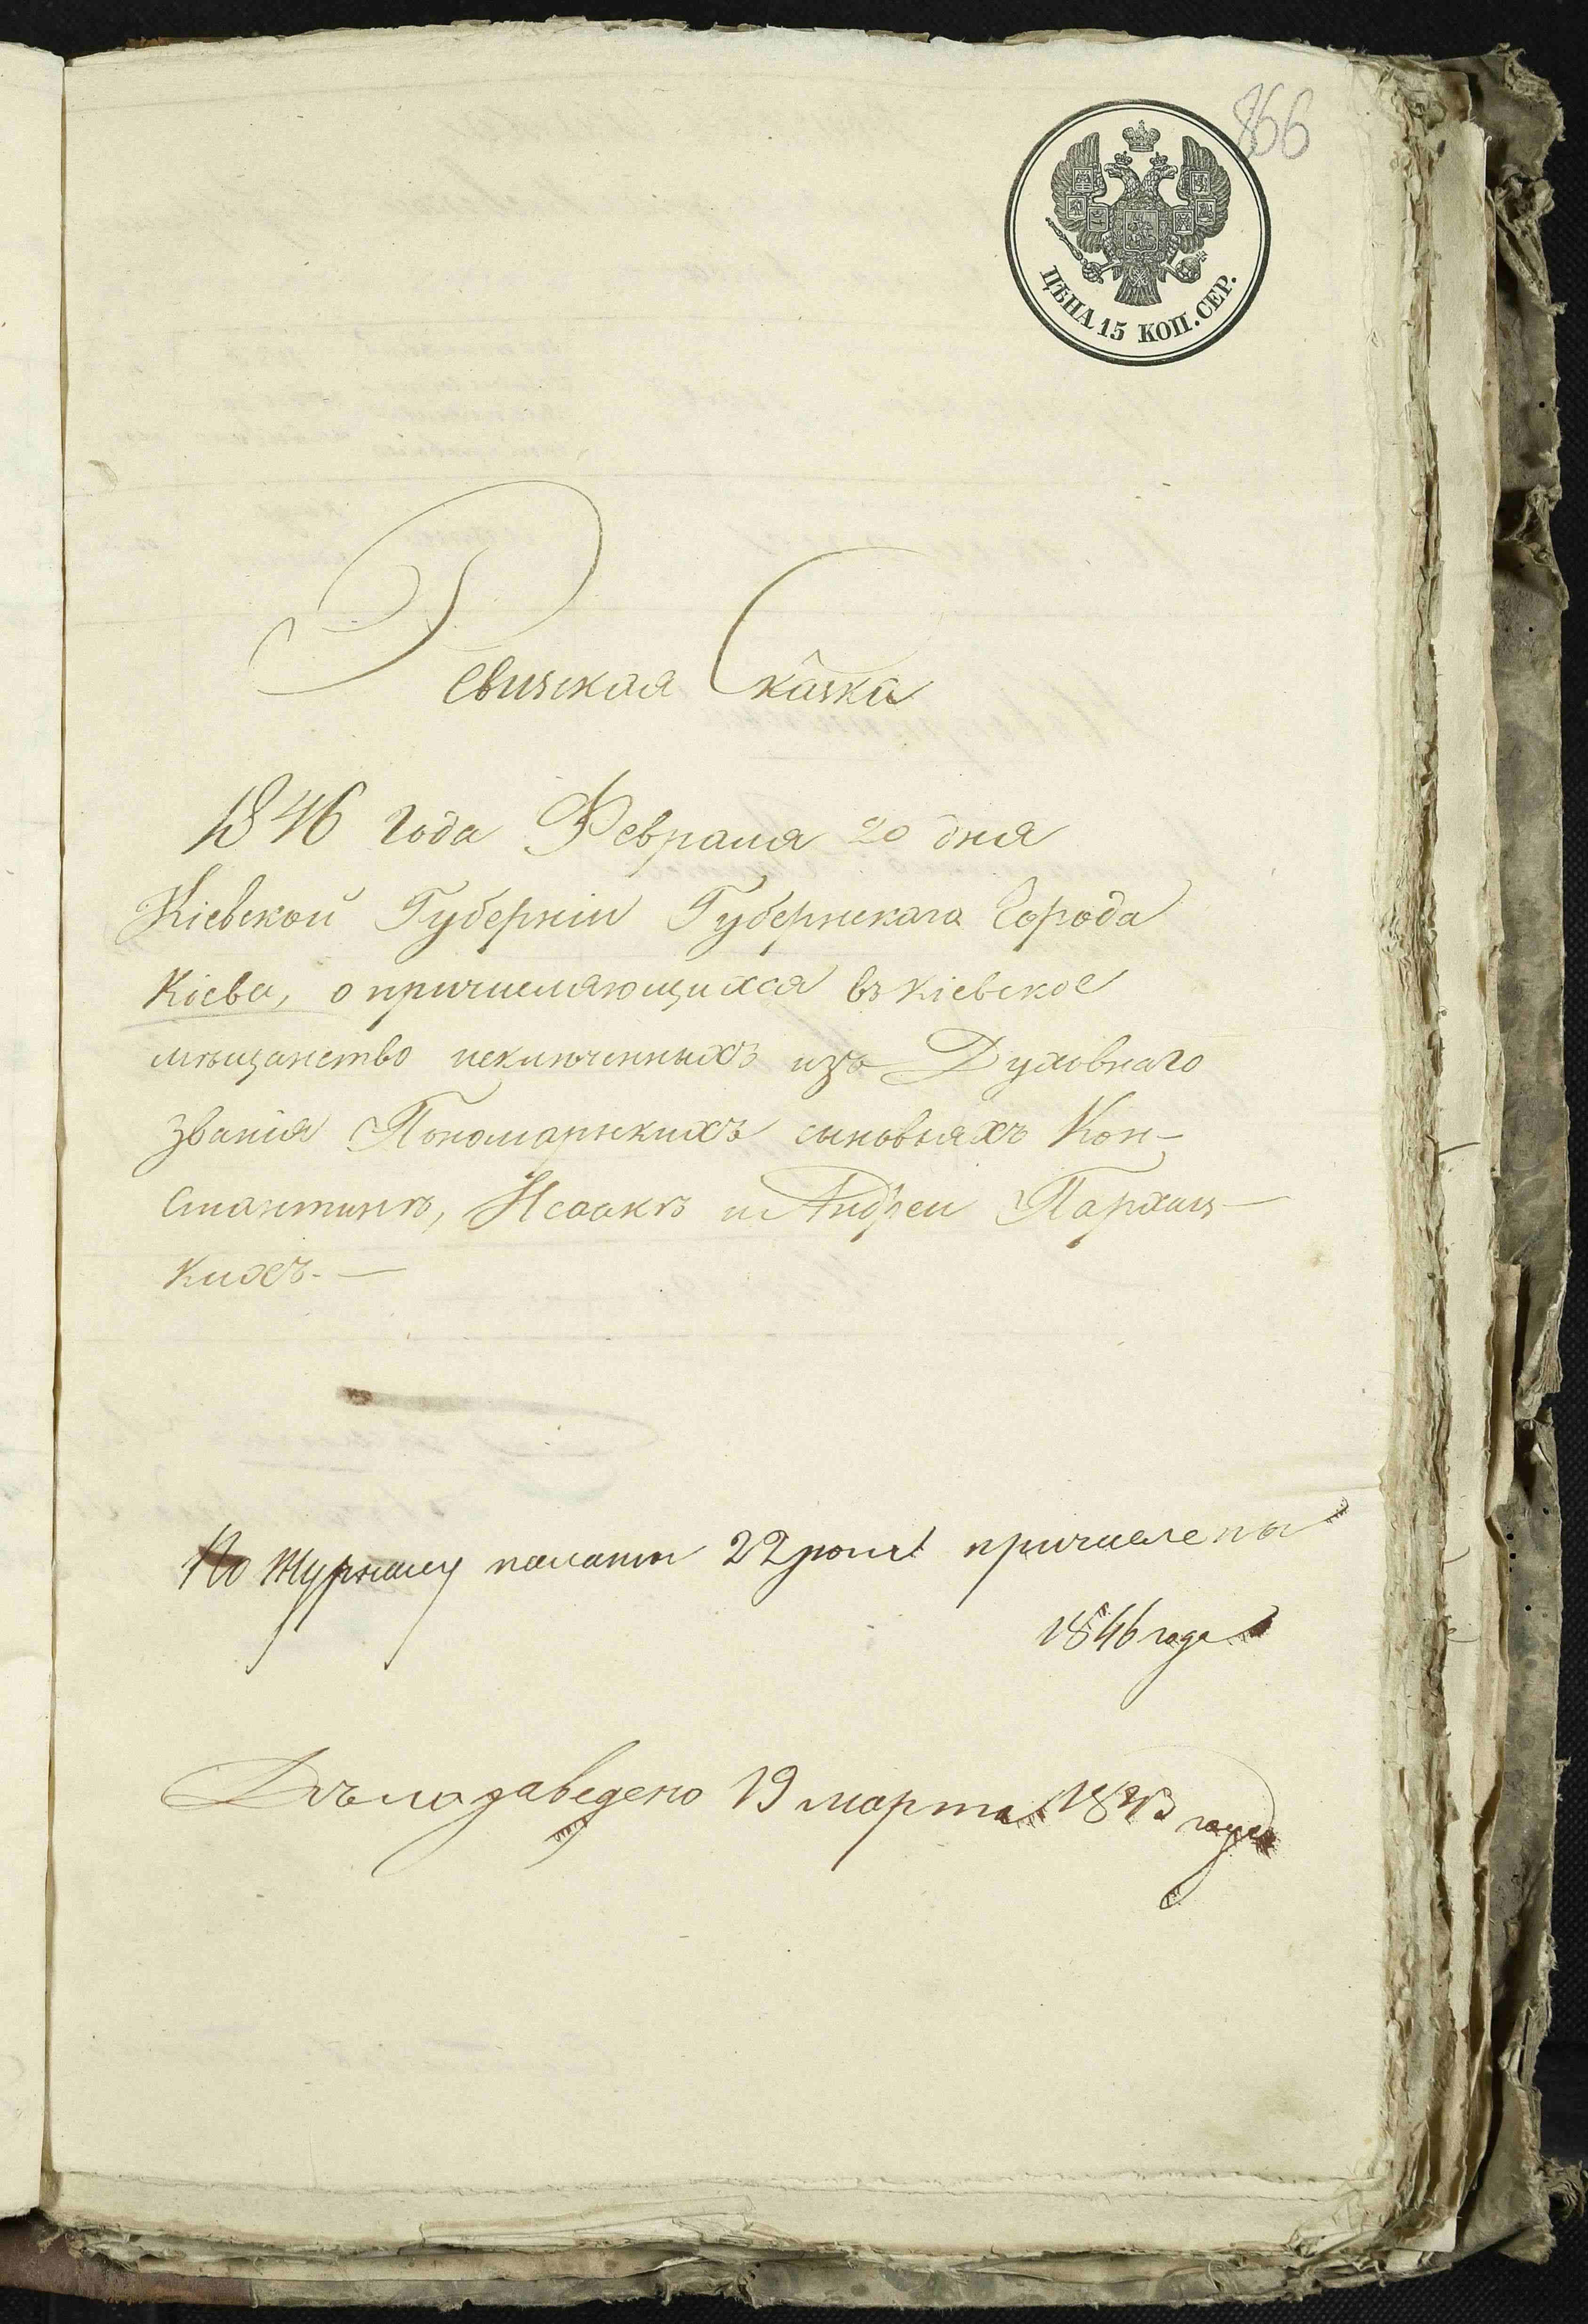 866
ЦѢНА 15 КОП. СЕР.
Ревизская Сказка
1846 года Февраля 20 дня
Кіевской Губерніи Губернскаго Города
Кіева, о причисляющихся въ кіевское
мѣщанство исключенныхъ изъ Духовнаго
званія Пономарскихъ сыновьяхъ Кон-
стантинѣ, Исаакѣ и Андреи Пархаль-
кихъ.
По журналу палаты 22 июля причислены
1846 года
Дѣло заведено 19 марта 1843 года